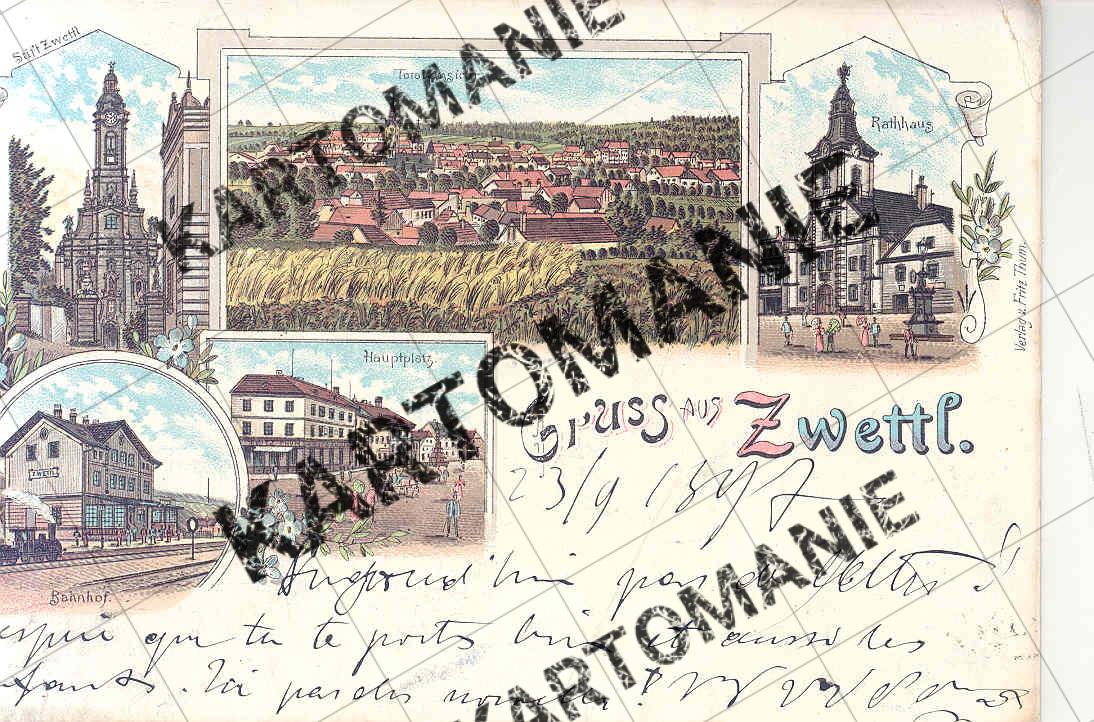 Stift Zwettl
Totalansicht
Rathhaus
Verlag v. Fritz Thum.
Hauptplatz.
Gruss aus Zwettl.
ZWETTL
Bahnhof.
23/9 1897
Aujourd'hui pas de lettre J'
espère que tu te portes bien et aussi les
enfants. Ici pas de nouvelles!
KARTOMANIE
KARTOMANIE
KARTOMANIE
KARTOMANIE